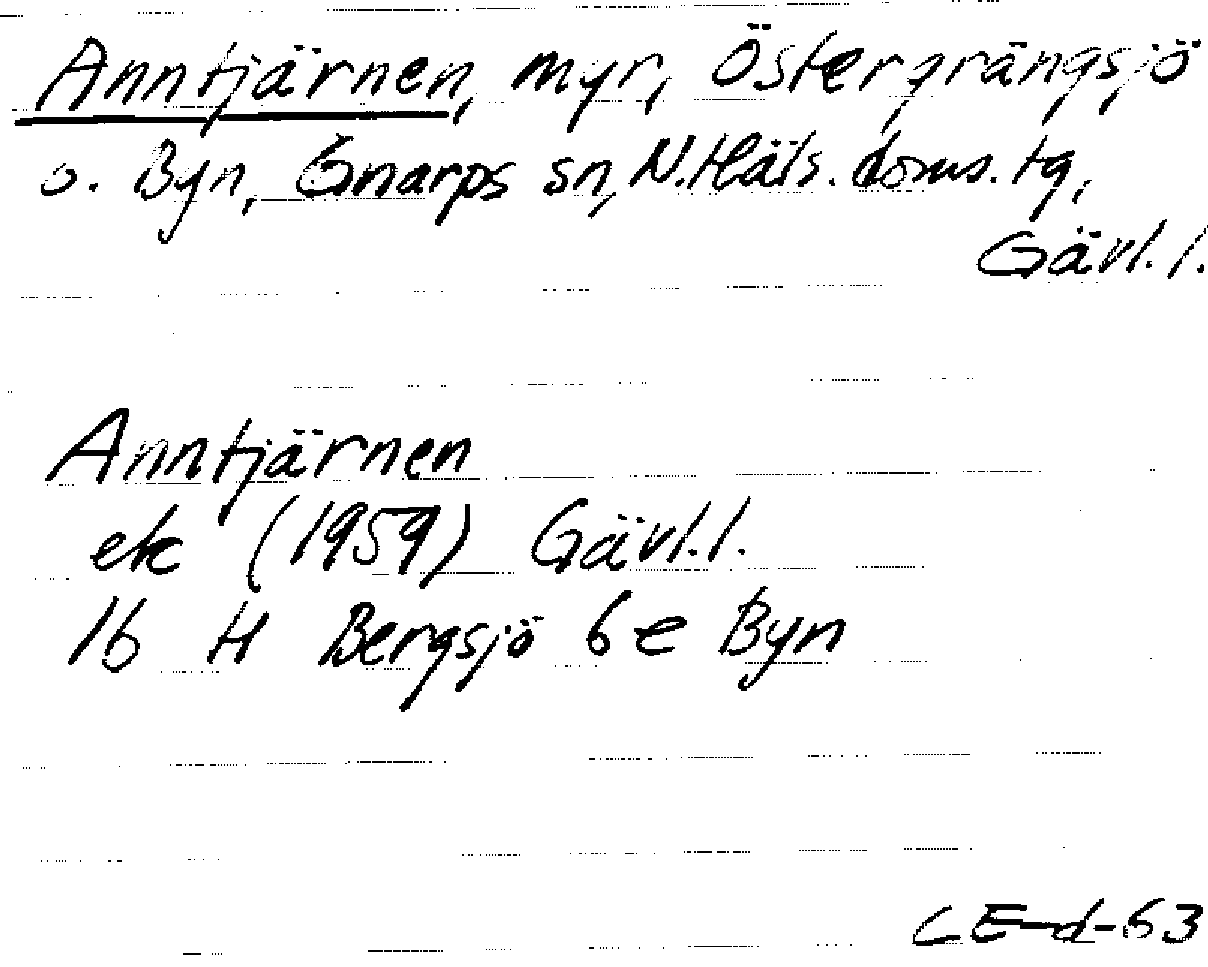 Anntjärnen, myr, Östergrängsjö
o. Byn, Gnarps sn, N. Häls. doms. tg,
Gävl. l.
Anntjärnen
ek (1959) Gävl. l.
16 H Bergsjö 6 e Byn
CE-d-63